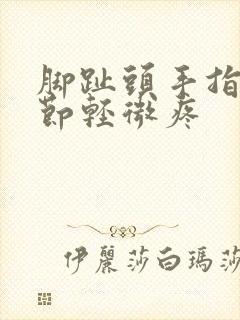 脚趾頭手指
節輕微疼
伊麗莎白瑪莎